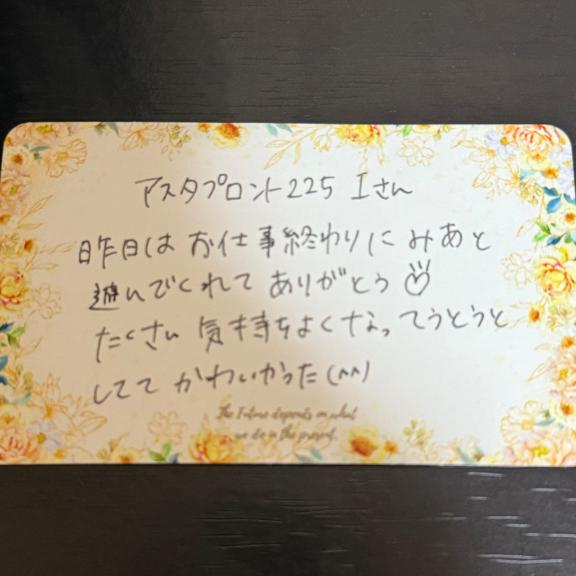 アスタプロント225 Iさん
昨日は お仕事終わりに みあと
遊んでくれて ありがとう♡
たくさん 気持ちよくなって うとうと
してて かわいかった(^^)
The Future depends on what
we do in the present.